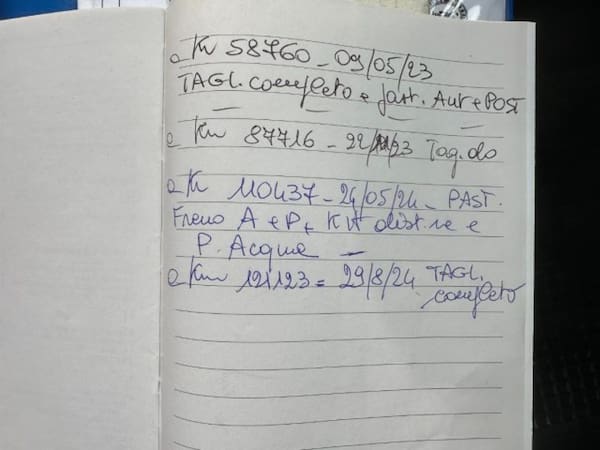 o Km 58760 - 09/05/23
TAGL. completo e past. Ant e POST
o Km 87716 - 22/11/23 Tag.do
o Km 110437 - 24/05/24 - PAST.
Freno A e P + Kit distr.ne e
P. Acqua -
o Km 121123 = 29/8/24 TAGL.
completo